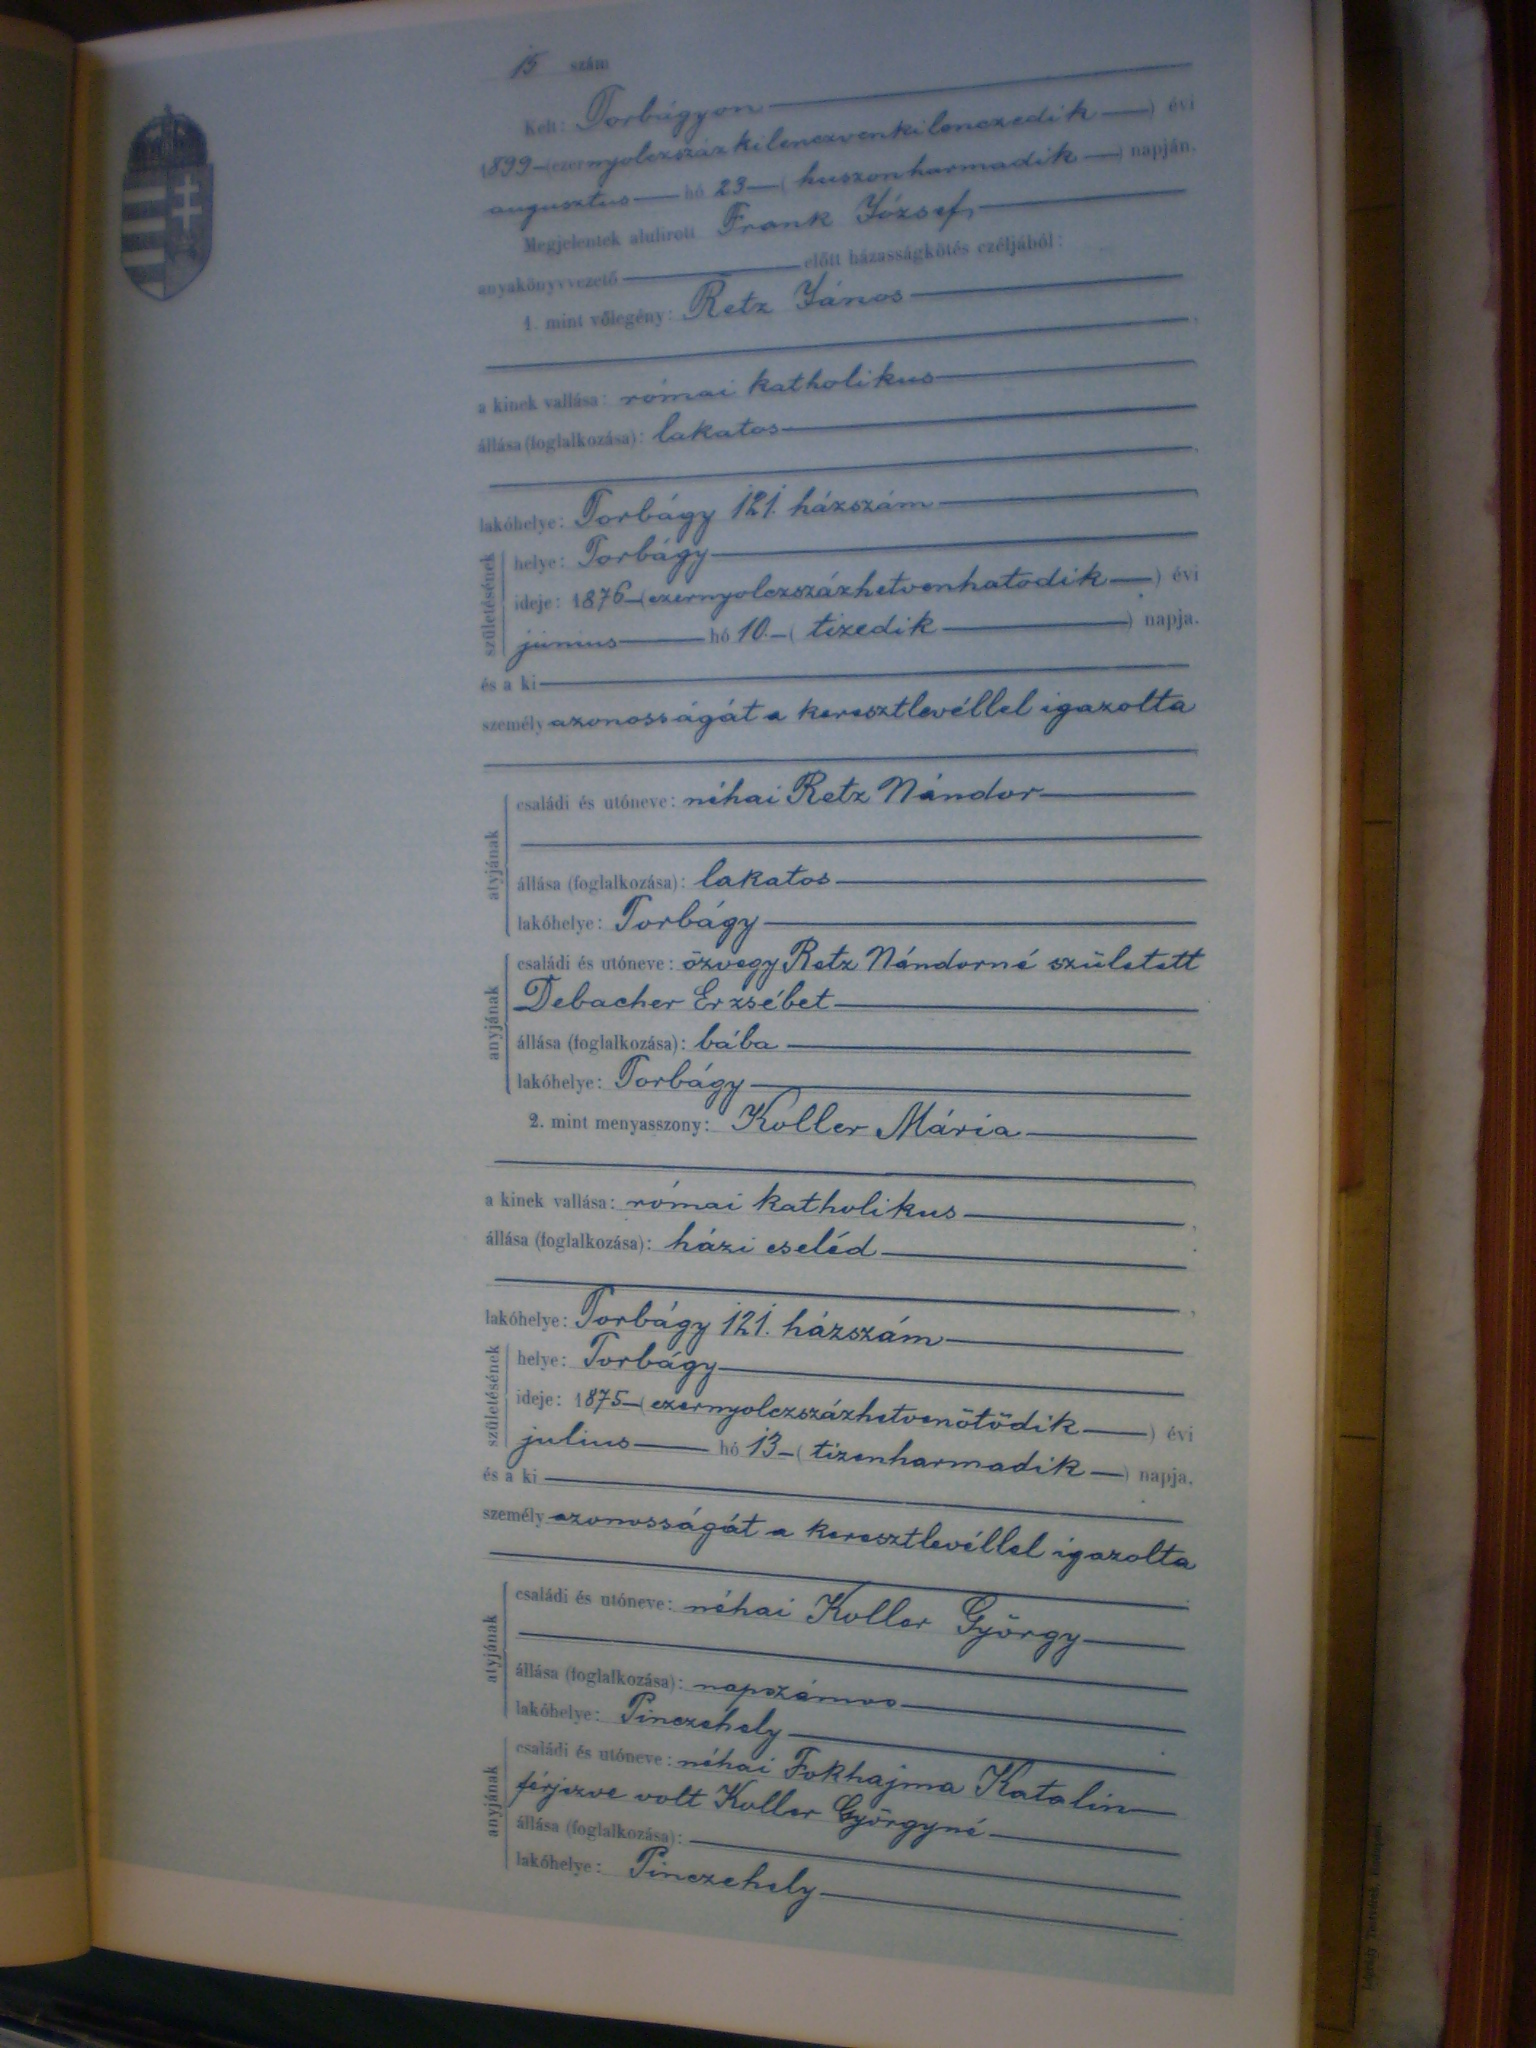 15 szám
Kelt: Torbágyon
1899 (ezernyolczszázkilenczvenkilenczedik) évi
augusztus hó 23 (huszonharmadik) napján.
Megjelentek alulirott Frank József,
anyakönyvvezető előtt házasságkötés czéljából:
1. mint vőlegény: Retz János
a kinek vallása: római katholikus
állása (foglalkozása): lakatos
lakóhelye: Torbágy 121. házszám
születésének
helye: Torbágy
ideje: 1876 (ezernyolczszázhetvenhatodik) évi
június hó 10. (tizedik) napja.
és a ki
személyazonosságát a keresztlevéllel igazolta
atyjának
családi és utóneve: néhai Retz Nándor
állása (foglalkozása): lakatos
lakóhelye: Torbágy
anyjának
családi és utóneve: özvegy Retz Nándorné született
Debacher Erzsébet
állása (foglalkozása): bába
lakóhelye: Torbágy
2. mint menyasszony: Koller Mária
a kinek vallása: római katholikus
állása (foglalkozása): házi cseléd
lakóhelye: Torbágy 121. házszám
születésének
helye: Torbágy
ideje: 1875 (ezernyolczszázhetvenötödik) évi
julius hó 13 (tizenharmadik) napja.
és a ki
személyazonosságát a keresztlevéllel igazolta
atyjának
családi és utóneve: néhai Koller György
állása (foglalkozása): napszámos
lakóhelye: Pinczehely
anyjának
családi és utóneve: néhai Fokhajma Katalin
férjezve volt Koller Györgyné
állása (foglalkozása):
lakóhelye: Pinczehely